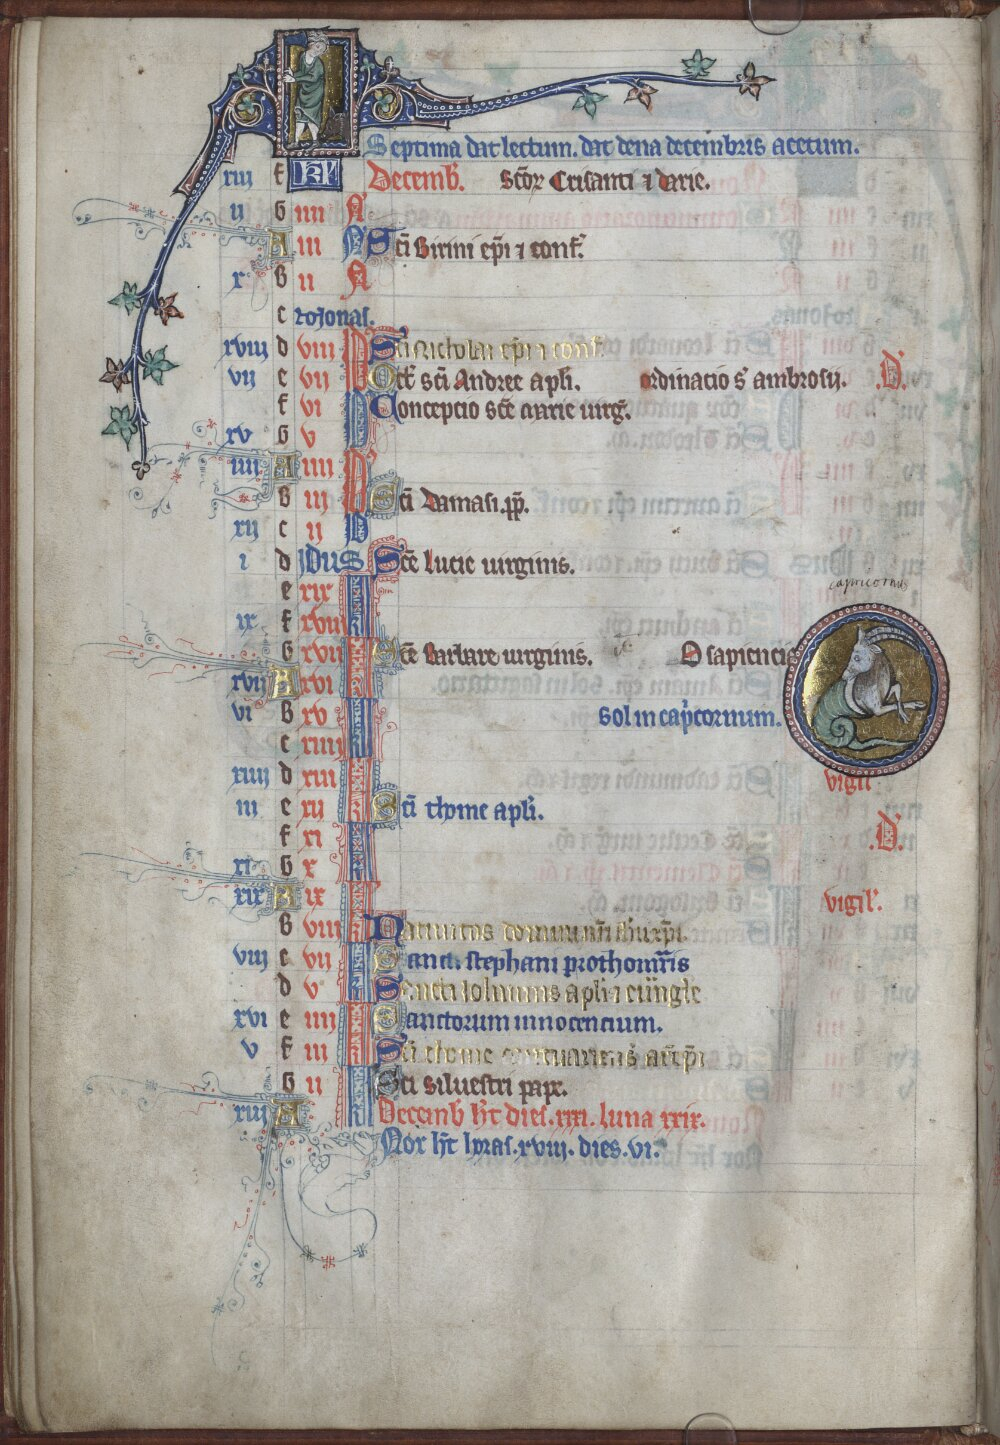 Septima dat lectum. dat dena decembris acetum.
xiii f kl' Decemb'. Scor Crisanti ⁊ darie.
ii G iiii N
A iii N Sci Birini epi ⁊ conf'.
x B ii N
c
viii
xviii d viii Id Sci Nicholai epi ⁊ conf'.
vii e vii Id Oct' sci Andree apli. ordinatio s' ambrosij. .D.
f vi Id Conceptio sce marie uirg'.
xv G v Id
iiii A iiii Id
B iii Id Sci Damasi. pp.
xii c ii Id
i d IDUS Sce lucie uirginis.
e xix kl
ix f xviii kl
G xvii kl Sce Barbare uirginis. O sapiencia
capricornus
xvii A xvi kl
vi B xv kl Sol in cap'cornum.
c xiiii kl
xiiii d xiii kl vigil'
iii e xii kl Sci thome apli.
f xi kl .D.
xi G x kl
xix A ix kl vigil'.
B viii kl Natiuitas domini nri ihu xpi.
viii c vii kl Sanct. stephani prothom'ris
d v kl Sancti Iohannis apli ⁊ euugle
xvi e iiii kl Sanctorum innocencium.
v f iii kl Sci thome cantuariens' archepi
G ii kl Sci siluestri pape.
xiii A Decemb' ht dies. xxxi. luna xxix.
Nox ht horas. xviii. dies. vi.